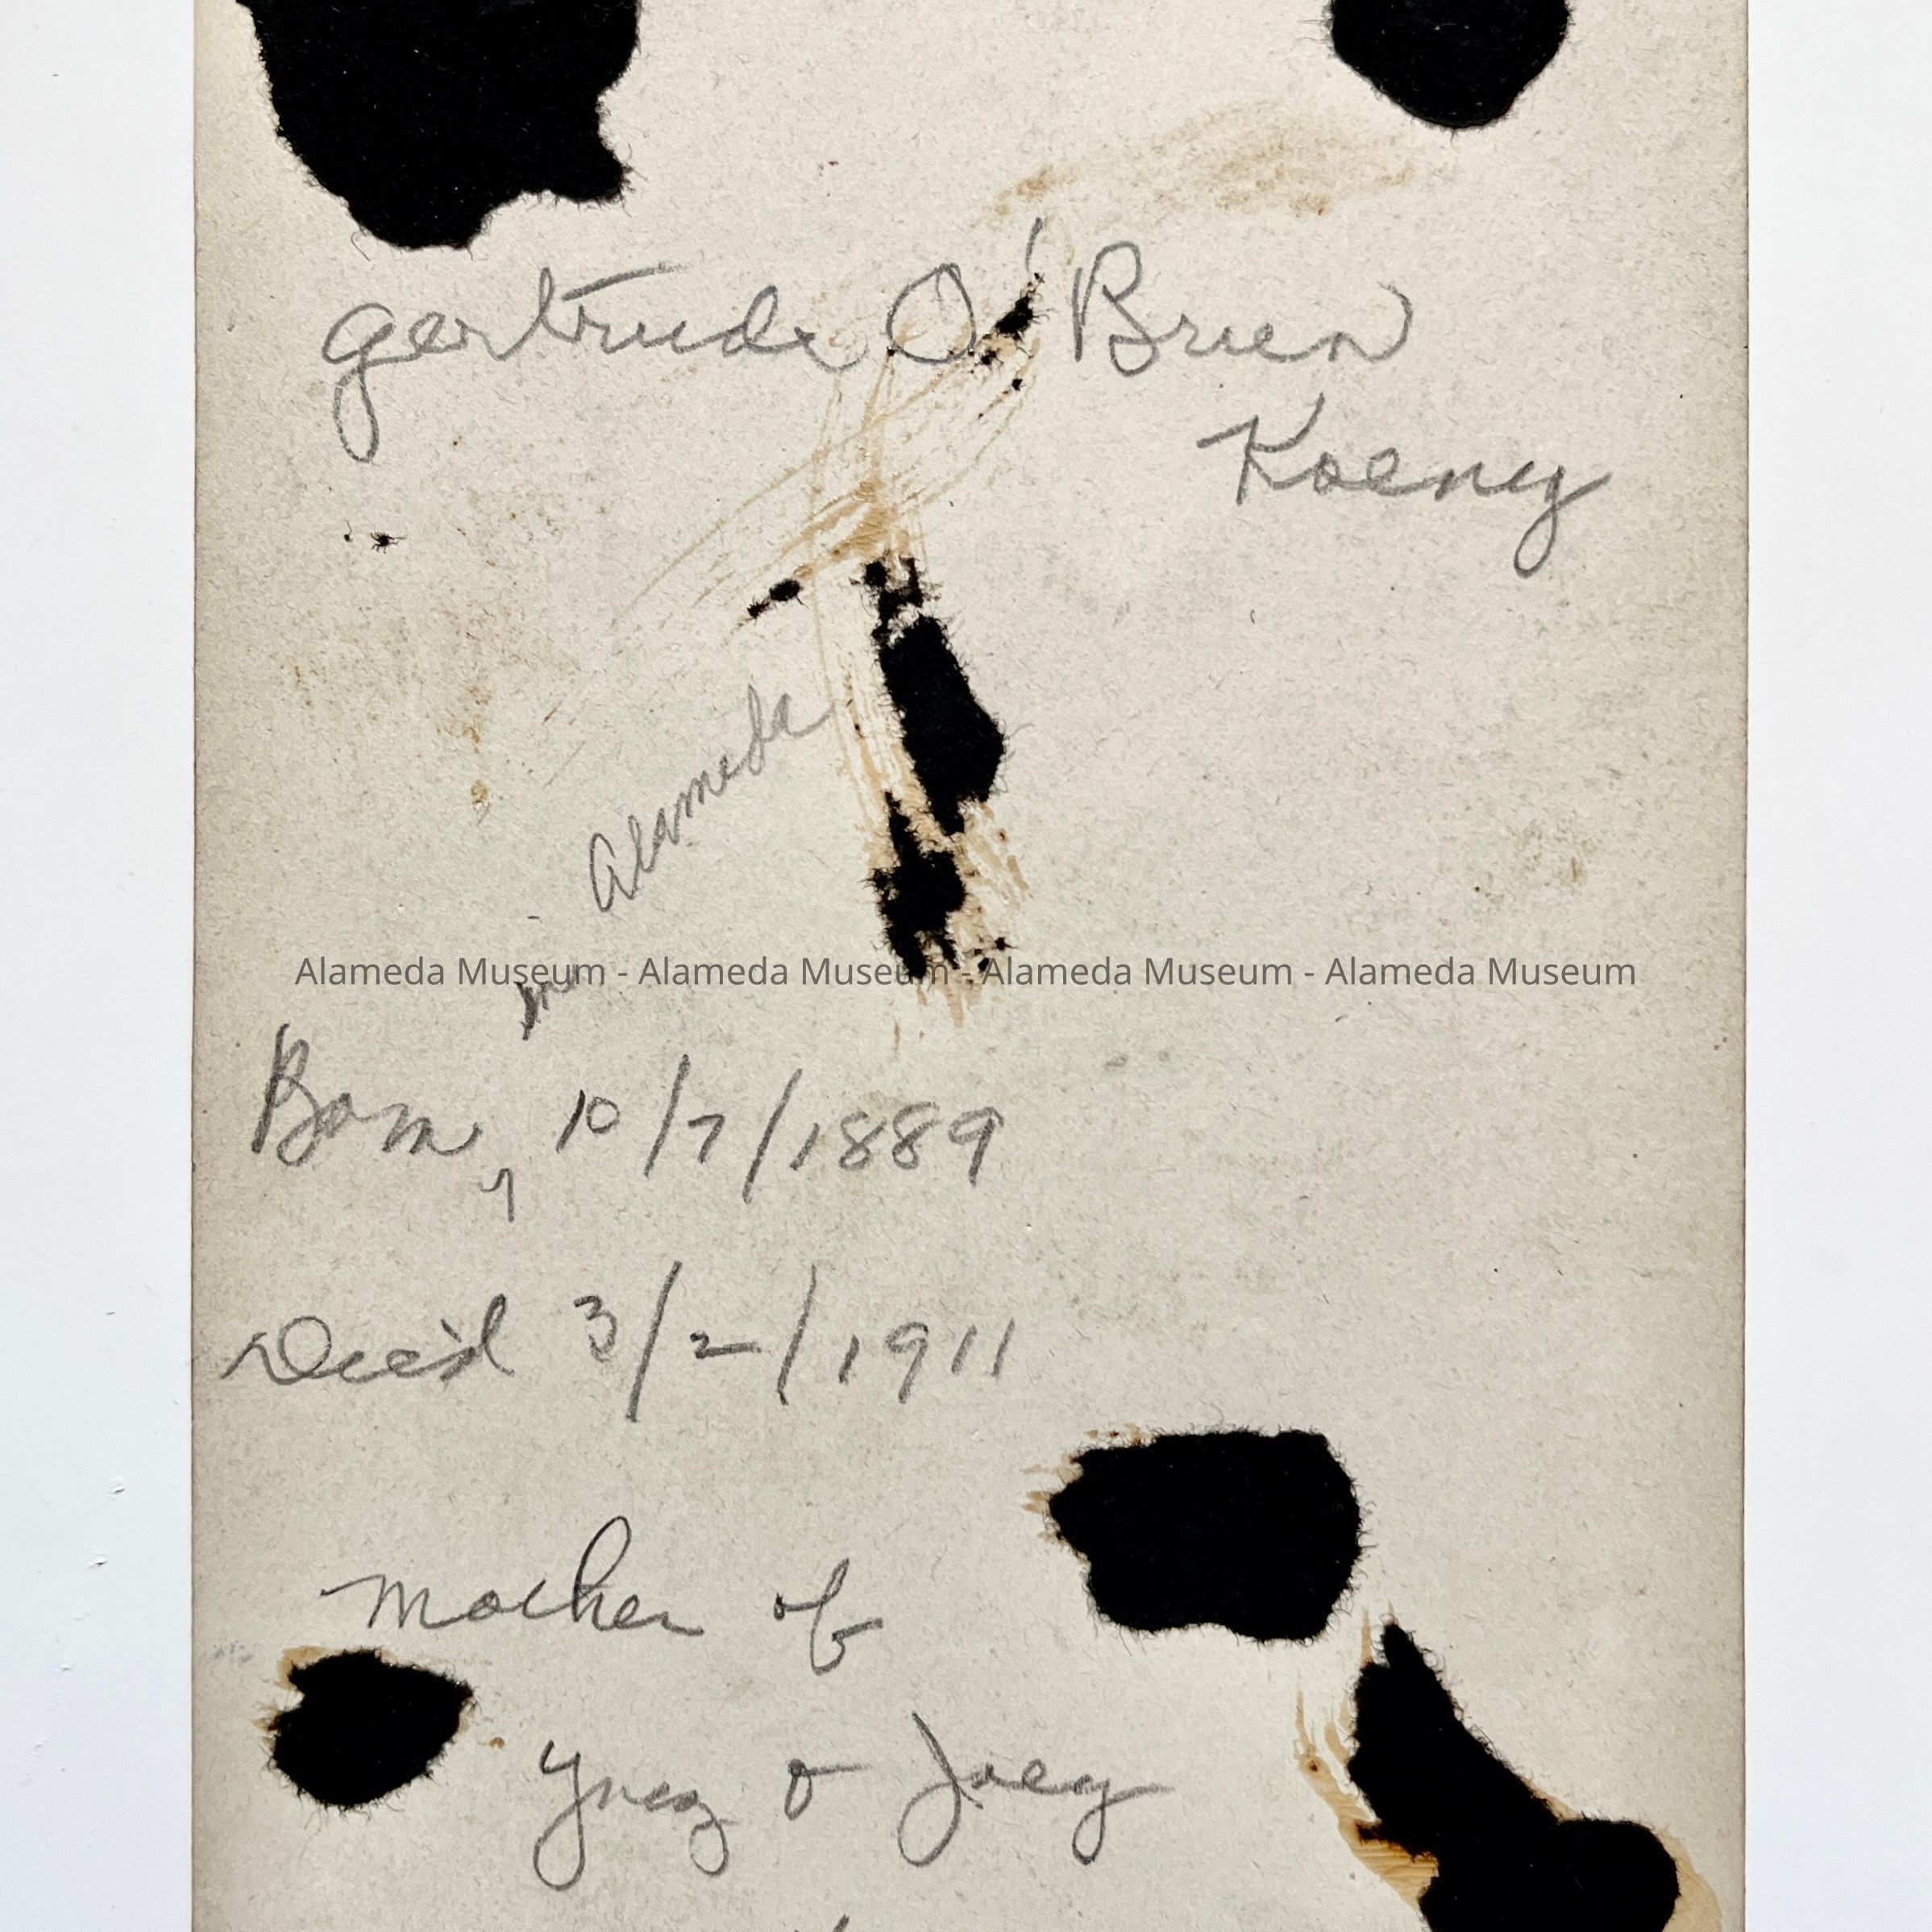 Gertrude O'Brien
Koeny
in Alameda
Alameda Museum - Alameda Museum - Alameda Museum - Alameda Museum
Born 10/7/1889
Died 3/2/1911
Mother of
Ynez & Joey